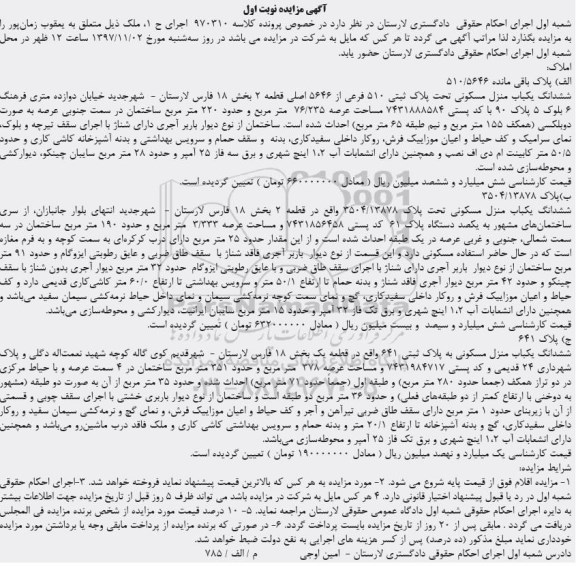 آگهی مزایده نوبت اول
شعبه اول اجرای احکام حقوقی دادگستری لارستان در نظر دارد در خصوص پرونده کلاسه ۹۷۰۳۱۰ اجرای ح ۱، ملک ذیل متعلق به یعقوب زمان‌پور را
به مزایده بگذارد لذا مراتب آگهی می گردد تا هر کس که مایل به شرکت در مزایده می باشد در روز سه‌شنبه مورخ ۱۳۹۷/۱۱/۰۲ ساعت ۱۲ ظهر در محل
شعبه اول اجرای احکام حقوقی دادگستری لارستان حضور یابد.
املاک:
الف) پلاک باقی مانده ۵۱۰/۵۶۴۶
ششدانگ یکباب منزل مسکونی تحت پلاک ثبتی ۵۱۰ فرعی از ۵۶۴۶ اصلی قطعه ۲ بخش ۱۸ فارس لارستان - شهرجدید خیابان دوازده متری فرهنگ
۶ بلوک ۵ پلاک ۹۰ با کد پستی ۷۴۳۱۸۸۸۵۸۴ مساحت عرصه ۷۶/۲۳۵ متر مربع و حدود ۲۲۰ متر مربع ساختمان در سمت جنوبی عرصه به صورت
دوبلکسی (همکف ۱۵۵ متر مربع و نیم طبقه ۶۵ متر مربع) احداث شده است. ساختمان از نوع دیوار باربر آجری دارای شناژ با اجرای سقف تیرچه و بلوک،
نمای سرامیک و کف حیاط و اعیان موزاییک فرش، روکار داخلی سفیدکاری، بدنه و سقف حمام و سرویس بهداشتی و بدنه آشپزخانه کاشی کاری و حدود
۵۰/۵ متر کابینت ام دی اف نصب و همچنین دارای انشعابات آب ۱.۲ اینچ شهری و برق سه فاز ۲۵ آمپر و حدود ۲۸ متر مربع سایبان چینکو، دیوارکشی
و محوطه‌سازی شده است.
قیمت کارشناسی شش میلیارد و ششصد میلیون ریال ( معادل ۶۶۰۰۰۰۰۰۰ تومان ) تعیین گردیده است.
ب)پلاک ۳۵۰۴/۱۳۸۷۸
ششدانگ یکباب منزل مسکونی تحت پلاک ۳۵۰۴/۱۳۸۷۸ واقع در قطعه ۲ بخش ۱۸ فارس لارستان - شهرجدید انتهای بلوار جانبازان، از سری
ساختمان‌های مشهور به یکصد دستگاه پلاک ۶۱ کد پستی ۷۴۳۱۸۵۶۴۵۸ و مساحت عرصه ۳/۳۳۳ متر مربع و حدود ۱۹۰ متر مربع ساختمان در سه
سمت شمالی، جنوبی و غربی عرصه در یک طبقه احداث شده است و از این مقدار حدود ۲۵ متر مربع دارای درب کرکره‌ای به سمت کوچه و به فرم مغازه
است که در حال حاضر استفاده مسکونی دارد و این قسمت از نوع دیوار باربر آجری فاقد شناژ با سقف طاق ضربی و عایق رطوبتی ایزوگام و حدود ۹۱ متر
مربع ساختمان از نوع دیوار باربر آجری دارای شناژ با اجرای سقف طاق ضربی و با عایق رطوبتی ایزوگام حدود ۳۲ متر مربع دیوار آجری بدون شناژ با سقف
چینکو و حدود ۴۲ متر مربع دیوار آجری فاقد شناژ و بدنه حمام تا ارتفاع ۵۰/۱ متر و سرویس بهداشتی تا ارتفاع ۶۰/۰ متر کاشی‌کاری قدیمی دارد و کف
حیاط و اعیان موزاییک فرش و روکار داخلی سفیدکاری، گچ و نمای سمت کوچه نرمه‌کشی سیمان و نمای داخل حیاط نرمه‌کشی سیمان سفید می‌باشد و
همچنین دارای انشعابات آب ۱.۲ اینچ شهری و برق تک فاز ۳۲ آمپر و حدود ۱۵ متر مربع سایبان ایرانیت، دیوارکشی و محوطه‌سازی می‌باشد.
قیمت کارشناسی شش میلیارد و سیصد و بیست میلیون ریال ( معادل ۶۳۲۰۰۰۰۰۰ تومان ) تعیین گردیده است.
ج) پلاک ۶۴۱
ششدانگ یکباب منزل مسکونی به پلاک ثبتی ۶۴۱ واقع در قطعه یک بخش ۱۸ فارس لارستان - شهرقدیم کوی گاله کوچه شهید نعمت‌اله دگلی و پلاک
شهرداری ۲۴ قدیمی و کد پستی ۷۴۳۱۹۸۴۷۱۷ و مساحت عرصه ۳۷۸ متر مربع و حدود ۳۵۱ متر مربع ساختمان در ۴ سمت عرصه و با حیاط مرکزی
در دو تراز همکف (جمعا حدود ۲۸۰ متر مربع) و طبقه اول (جمعا حدود ۷۱ متر مربع) احداث شده و حدود ۳۵ متر مربع از آن به صورت دو طبقه (مشهور
به دوخنی با ارتفاع کمتر از دو طبقه‌های فعلی) و حدود ۳۶ متر مربع دو طبقه است. ساختمان از نوع دیوار باربری خشتی با اجرای سقف چوبی و قسمتی
از آن با زیربنای حدود ۱ متر مربع دارای سقف طاق ضربی تیرآهن و آجر و کف حیاط و اعیان موزاییک فرش، و نمای گچ و نرمه‌کشی سیمان سفید و روکار
داخلی سفیدکاری، گچ و بدنه آشپزخانه تا ارتفاع ۲۰/۱ متر و بدنه حمام و سرویس بهداشتی کاشی کاری و ملک فاقد درب ماشین‌رو می‌باشد و همچنین
دارای انشعابات آب ۱.۲ اینچ شهری و برق تک فاز ۲۵ آمپر و محوطه‌سازی می‌باشد.
قیمت کارشناسی یک میلیارد و نهصد میلیون ریال ( معادل ۱۹۰۰۰۰۰۰۰ تومان ) تعیین گردیده است.
شرایط مزایده:
۱- مزایده اقلام فوق از قیمت پایه شروع می شود. ۲- مورد مزایده به هر کس که بالاترین قیمت پیشنهاد نماید فروخته خواهد شد. ۳-اجرای احکام حقوقی
شعبه اول در رد یا قبول پیشنهاد اختیار قانونی دارد. ۴ هر کس مایل به شرکت در مزایده باشد می تواند ظرف ۵ روز قبل از تاریخ مزایده جهت اطلاعات بیشتر
به دایره اجرای احکام حقوقی شعبه اول دادگاه عمومی حقوقی لارستان مراجعه نماید. ۵- ۱۰ درصد قیمت مورد مزایده از شخص برنده مزایده فی المجلس
دریافت می گردد . مابقی پس از ۲۰ روز از تاریخ مزایده بایست پرداخت گردد. ۶- در صورتی که برنده مزایده از پرداخت مابقی وجه یا برداشتن مورد مزایده
خودداری نماید مبلغ مذکور (ده درصد) پس از کسر هزینه های اجرایی به نفع دولت ضبط خواهد شد.
دادرس شعبه اول اجرای احکام حقوقی دادگستری لارستان - امین اوجی م / الف / ۷۸۵